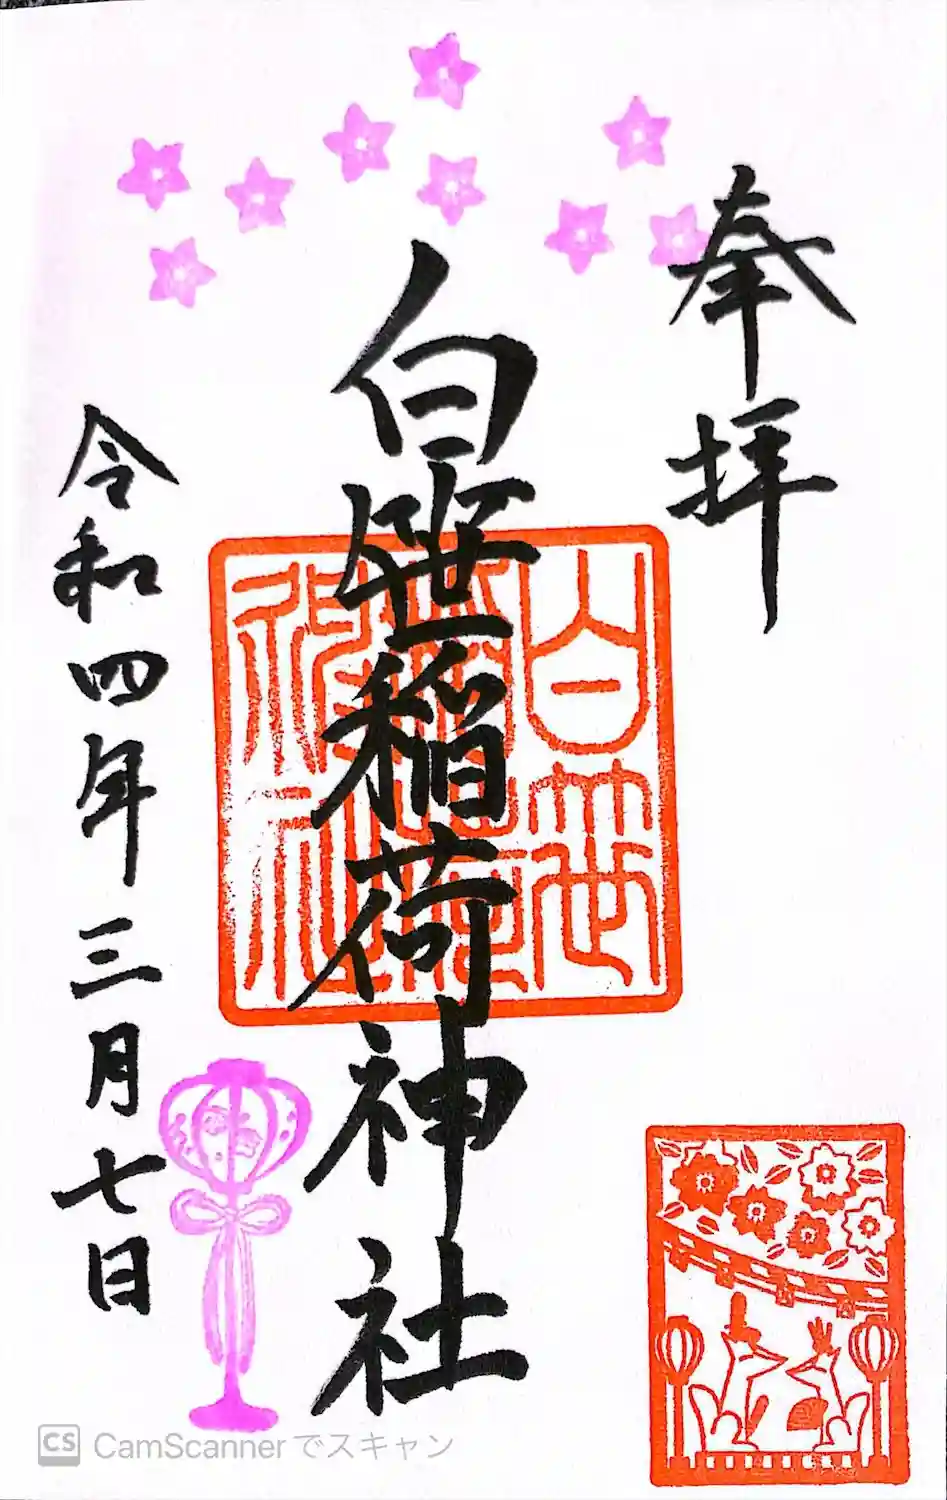 奉拝
白笹稲荷神社
白笹
稲荷
神社
令和四年三月七日
CS CamScannerでスキャン